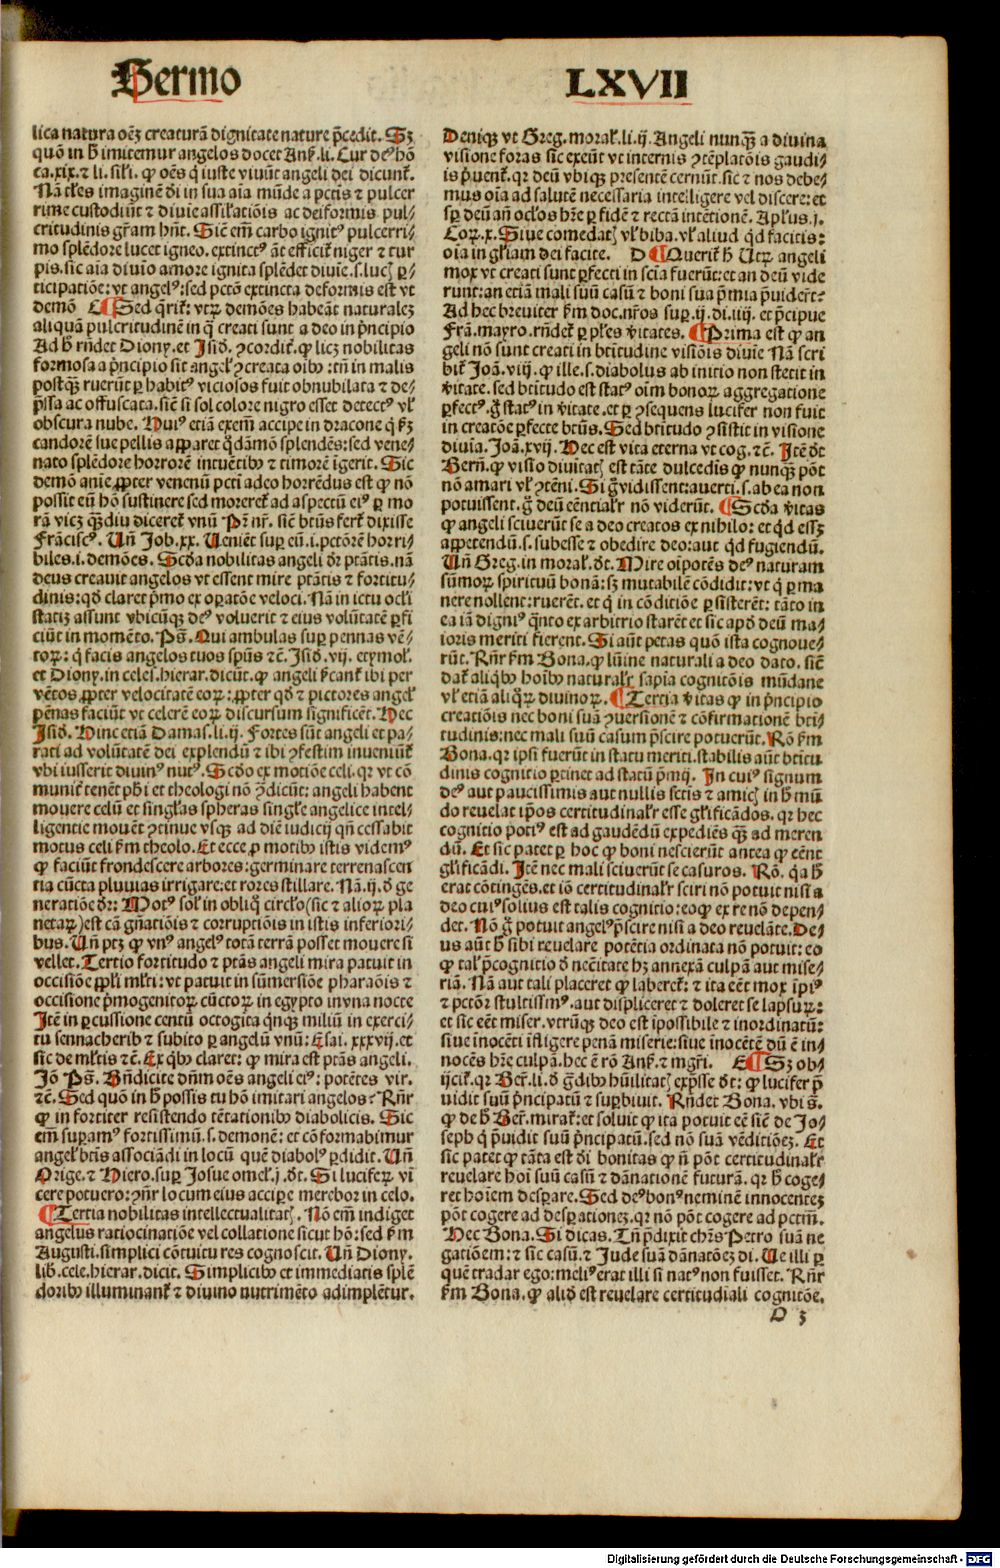 Sermo LXVII
lica natura oēꝫ creaturā dignitate nature p̄cedit. Sꝫ
quō in h̄ imitemur angelos docet Anẜ. li. Cur deꝰ hō
ca.xix.⁊ li. sił'i. ꝙ oēs q̇ iuste viuūt angeli dei dicunẜ.
Nā tłes imaginē d̄i in sua aīa mūde a pctīs ⁊ pulcer
rime custodiūt ⁊ diuīe assilatiōis ac deiformis pul⸗
critudinis gr̄am hn̄t. Sic̄ em̄ carbo ignitꝰ pulcerri⸗
mo splēdore lucet igneo. extinctꝰ āt efficit̄ niger ⁊ tur
pis. sic aīa diuīo amore ignita splēdet diuīe .s. luci ꝑ⸗
ticipatiōe: vt angelꝰ: sed pctm̄ extincta deformis est vt
demō C ¶ Sed q̄rit̄: vtꝝ demōes habeāt naturaleꝫ
aliquā pulcritudinē in q̇ creati sunt a deo in p̄ncipio
Ad h̄ rn̄det Diony. et Isid̄. ꝯcordit̄. ꝙ licꝫ nobilitas
formosa a p̄ncipio sit angeł ꝯcreata oībꝰ: tn̄ in malis
postq̄ꝫ ruerūt ꝑ habitꝰ viciosos fuit obnubilata ⁊ de⸗
p̄ssa ac offuscata. sic̄ si sol colore nigro esset detectꝰ vł
obscura nube. Huiꝰ etiā exem̄ accipe in dracone q̇ ẜꝫ
candorē sue pellis apparet q̇dāmō splendēs: sed vene⸗
nato splēdore horrorē intuētibꝰ ⁊ timorē īgerit. Sic
demō anīe ꝓpter venenū pctī adeo horrēdus est ꝙ nō
possit eū hō sustinere sed moreret̄ ad aspectū eiꝰ ꝑ mo
rā vicꝫ q̄ꝫdiu diceret̄ vnū Pr̄ nr̄. sic̄ btūs fert̄ dixisse
Frāciscꝰ. Un̄ Job.xx. Ueniēt suꝑ eū .i. pctōrē horri⸗
biles .i. demōes. Scd̄a nobilitas angeli dr̄ ptātis. nā
deus creauit angelos vt essent mire ptātis ⁊ fortitu⸗
dinis: qd̄ claret p̄mo ex oꝑatōe veloci. Nā in ictu ocłi
statiꝫ assunt vbicūqꝫ deꝰ voluerit ⁊ eius volūtatē ꝑfi
ciūt in momēto. Ps̄. Qui ambulas suꝑ pennas vē⸗
toꝝ: q̇ facis angelos tuos spūs ⁊c̄. Isid̄. vij. etymoł.
et Diony. in celes. hierar. dicūt. ꝙ angeli ẜcant̄ ibi per
vētos. ꝓpter velocitatē eoꝝ: ꝓpter qd̄ ⁊ pictores angeł
pēnas faciūt vt celerē eoꝝ discursum significēt. Hec
Isid̄. Hinc etiā Damas. li. ij. Fortes sūt angeli et pa⸗
rati ad volūtatē dei explendū ⁊ ibi ꝯfestim inueniūt̄
vbi iusserit diuinꝰ nutꝰ. Scd̄o ex motiōe celi. qꝛ vt cō
munit̄ tenēt ph̄i et theologi nō ꝯdicūt: angeli habent
mouere celū et singłas spheras singłe angelice intel⸗
ligentie mouēt ꝯtinue vsqꝫ ad diē iudicij qn̄ cessabit
motus celi ẜm theolo. Et ecce ꝓ motibꝰ istis videmꝰ
ꝙ faciūt frondescere arbores: germinare terrenascen
tia cūcta pluuias irrigare: et rores stillare. Nā .ij. d̄ ge
neratiōe dr̄: Motꝰ soł in obliq̇ circło (sic ⁊ alioꝝ pla
netaꝝ) est cā gn̄atiōis ⁊ corruptiōis in istis inferiori⸗
bus. Un̄ ptꝫ ꝙ vnꝰ angelꝰ totā terrā posset mouere si
vellet. Tertio fortitudo ⁊ ptās angeli mira patuit in
occisiōe ppłi młti: vt patuit in sūmersiōe pharaōis ⁊
occisione p̄mogenitoꝝ cūctoꝝ in egypto in vna nocte
Itē in ꝑcussione centū octogita q̇nqꝫ miliū in exerci⸗
tu sennacherib ⁊ subito ꝑ angelū vnū: Esai. xxxvij. et
sic de młtis ⁊c̄. Ex q̇bꝰ claret: ꝙ mira est ptās angeli.
Jō Ps̄. Bn̄dicite dn̄m oēs angeli eiꝰ: potētes vir.
⁊c̄. Sed quō in h̄ possis tu hō imitari angelos? Rn̄r
ꝙ in fortiter resistendo tētationibꝰ diabolicis. Sic
em̄ suꝑamꝰ fortissimū .s. demonē: et cō formabimur
angeł btīs associādi in locū quē diabolꝰ ꝑdidit. Un̄
Orige. ⁊ Hiero. suꝑ Josue omeł. j. d̄t. Si luciferꝝ vī
cere potuero: ꝯn̄r locum eius accipe merebor in celo.
¶ Tertia nobilitas intellectualitatꝭ. Nō em̄ indiget
angelus ratiocinatiōe vel collatione sicut hō: sed ẜm
Augusti. simplici cōtuitu res cognoscit. Un̄ Diony.
lib. cele. hierar. dicit. Simplicibꝰ et immediatis splē
doribꝰ illuminant̄ ⁊ diuino nutrimēto adimplētur.
Deniqꝫ vt Greg. morał. li. ij. Angeli nunq̄ꝫ a diuina
visione foras sic exeūt vt internis ꝯtēplatōis gaudi⸗
is p̄uent̄. qꝛ deū vbiqꝫ presentē cernūt. sic ⁊ nos debe⸗
mus oīa ad salutē necessaria intelligere vel discere: et
sꝑ deū an̄ ocłos hr̄e ꝑ fidē ⁊ rectā intētionē. Apłus .j.
Coꝝ. x. Siue comedatꝭ vł biba. vł aliud qd̄ facitis:
oīa in głiam dei facite. D ¶ Querit̄ h̄ Utꝝ angeli
mox vt creati sunt ꝑfecti in scīa fuerūt: et an deū vide
runt: an etiā mali suū casū ⁊ boni sua p̄mia p̄uiderēt?
Ad hec breuiter ẜm doc. nr̄os suꝑ .ij. di. iiij. et p̄cipue
Frā. mayro. rn̄det̄ ꝑ płes v̄itates. ¶ Prima est ꝙ an
geli nō sunt creati in btītudine visiōis diuīe Nā scri
bit̄ Joā. viij. ꝙ ille .s. diabolus ab initio non stetit in
v̄itate. sed btītudo est statꝰ oīm bonoꝝ aggregatione
ꝑfectꝰ. g̊ statꝰ in v̄itate. et ꝑ ꝯsequens lucifer non fuit
in creatōe ꝑfecte btūs. Sed btītudo ꝯsistit in visione
diuīa. Joā. xvij. Hec est vita eterna vt cog. ⁊c̄. Itē d̄t
Bern̄. ꝙ visio diuītatꝭ est tāte dulcedīs ꝙ nunq̄ꝫ pōt
nō amari vł ꝯtēni. Si g̊ vidissent: auerti .s. ab ea non
potuissent. g̊ deū eēntiałr nō viderūt. ¶ Scd̄a v̄itas
ꝙ angeli sciuerūt se a deo creatos ex nihilo: et qd̄ esset
appetendū .s. subesse ⁊ obedire deo: aut qd̄ fugiendū.
Un̄ Greg. in morał. d̄t. Mire oīpotēs deꝰ naturam
sūmoꝝ spirituū bonā: sꝫ mutabilē cōdidit: vt q̇ ꝑma
nere nollent: ruerēt. et q̇ in cōditiōe ꝑsisterēt: tāto in
ea iā digniꝰ q̄nto ex arbitrio starēt et sic apd̄ deū ma⸗
ioris meriti fierent. Si aūt petas quō ista cognoue⸗
rūt. Rn̄r ẜm Bona. ꝙ lumīe naturali a deo dato. sic̄
dat̄ aliqbꝰ hoībꝰ naturałr sapīa cognitōis mūdane
vł etiā aliq̇ꝝ diuinoꝝ. ¶ Tertia v̄itas ꝙ in p̄ncipio
creatiōis nec boni suā ꝯuersionē ⁊ cōfirmationē btī⸗
tudinis: nec mali suū casum p̄scire potuerūt. Rō ẜm
Bona. qꝛ ipsi fuerūt in statu meriti. stabilis aūt btītu
dinis cognitio ꝑtinet ad statū p̄mij. In cuiꝰ signum
deꝰ aut paucissimis aut nullis sctīs ⁊ amicꝭ in h̄ mū
do reuelat ip̄os certitudinałr esse głificādos. qꝛ hec
cognitio potiꝰ est ad gaudēdū expediēs q̄ꝫ ad meren
dū. Et sic patet ꝑ hoc ꝙ boni nescierūt antea ꝙ eēnt
głificādi. Itē nec mali sciuerūt se casuros. Rō. q̇a h̄
erat cōtingēs. et iō certitudinałr sciri nō potuit nisi a
deo cuiꝰ solius est talis cognitio: eo ꝙ ex re nō depen⸗
det. Nō g̊ potuit angelꝰ p̄scire nisi a deo reuelāte. De⸗
us aūt h̄ sibi reuelare potētia ordinata nō potuit: eo
ꝙ tał p̄cognitio d̄ nec̄itate hꝫ annexā culpā aut mise⸗
riā. Nā aut tali placeret ꝙ laberet̄: ⁊ ita eēt mox īpiꝰ
⁊ pctōr stultissimꝰ. aut displiceret ⁊ doleret se lapsuꝝ:
et sic eēt miser. vtrūqꝫ deo est īpossibile ⁊ inordinatū:
siue inocēti īfligere penā miserie: siue inocētē dū ē in⸗
nocēs hr̄e culpā. hec ē rō Anẜ. ⁊ mgr̄i. E ¶ Sꝫ ob⸗
ijcit̄. qꝛ Ber̄. li. d̄ g̊dibꝰ hūilitatꝭ exp̄sse d̄t: ꝙ lucifer p̄
uidit suū p̄ncipatū ⁊ suꝑbiuit. Rn̄det Bona. vbi s̄.
ꝙ de h̄ Ber̄. mirat̄: et soluit ꝙ ita potuit eē sic̄ de Jo⸗
seph q̇ p̄uidit suū p̄ncipatū. sed nō suā vēditiōeꝫ. Et
sic patet ꝙ tāta est d̄i bonitas ꝙ n̄ pōt certitudinałr
reuelare hoī suū casū ⁊ dānationē futurā. qꝛ h̄ coge⸗
ret hoīem desꝑare. Sed deꝰ bonꝰ neminē innocenteꝫ
pōt cogere ad desꝑationeꝫ. qꝛ nō pōt cogere ad pctm̄.
Hec Bona. Si dicas. Tn̄ p̄dixit chr̄s Petro suā ne
gatiōem: ⁊ sic casū: ⁊ Jude suā dānatōeꝫ di. Ue illi ꝑ
quē tradar ego: meliꝰ erat illi si natꝰ non fuisset. Rn̄r
ẜm Bona. ꝙ aliđ est reuelare certitudiali cognitōe.
O 3
Digitalisierung gefördert durch die Deutsche Forschungsgemeinschaft - DFG